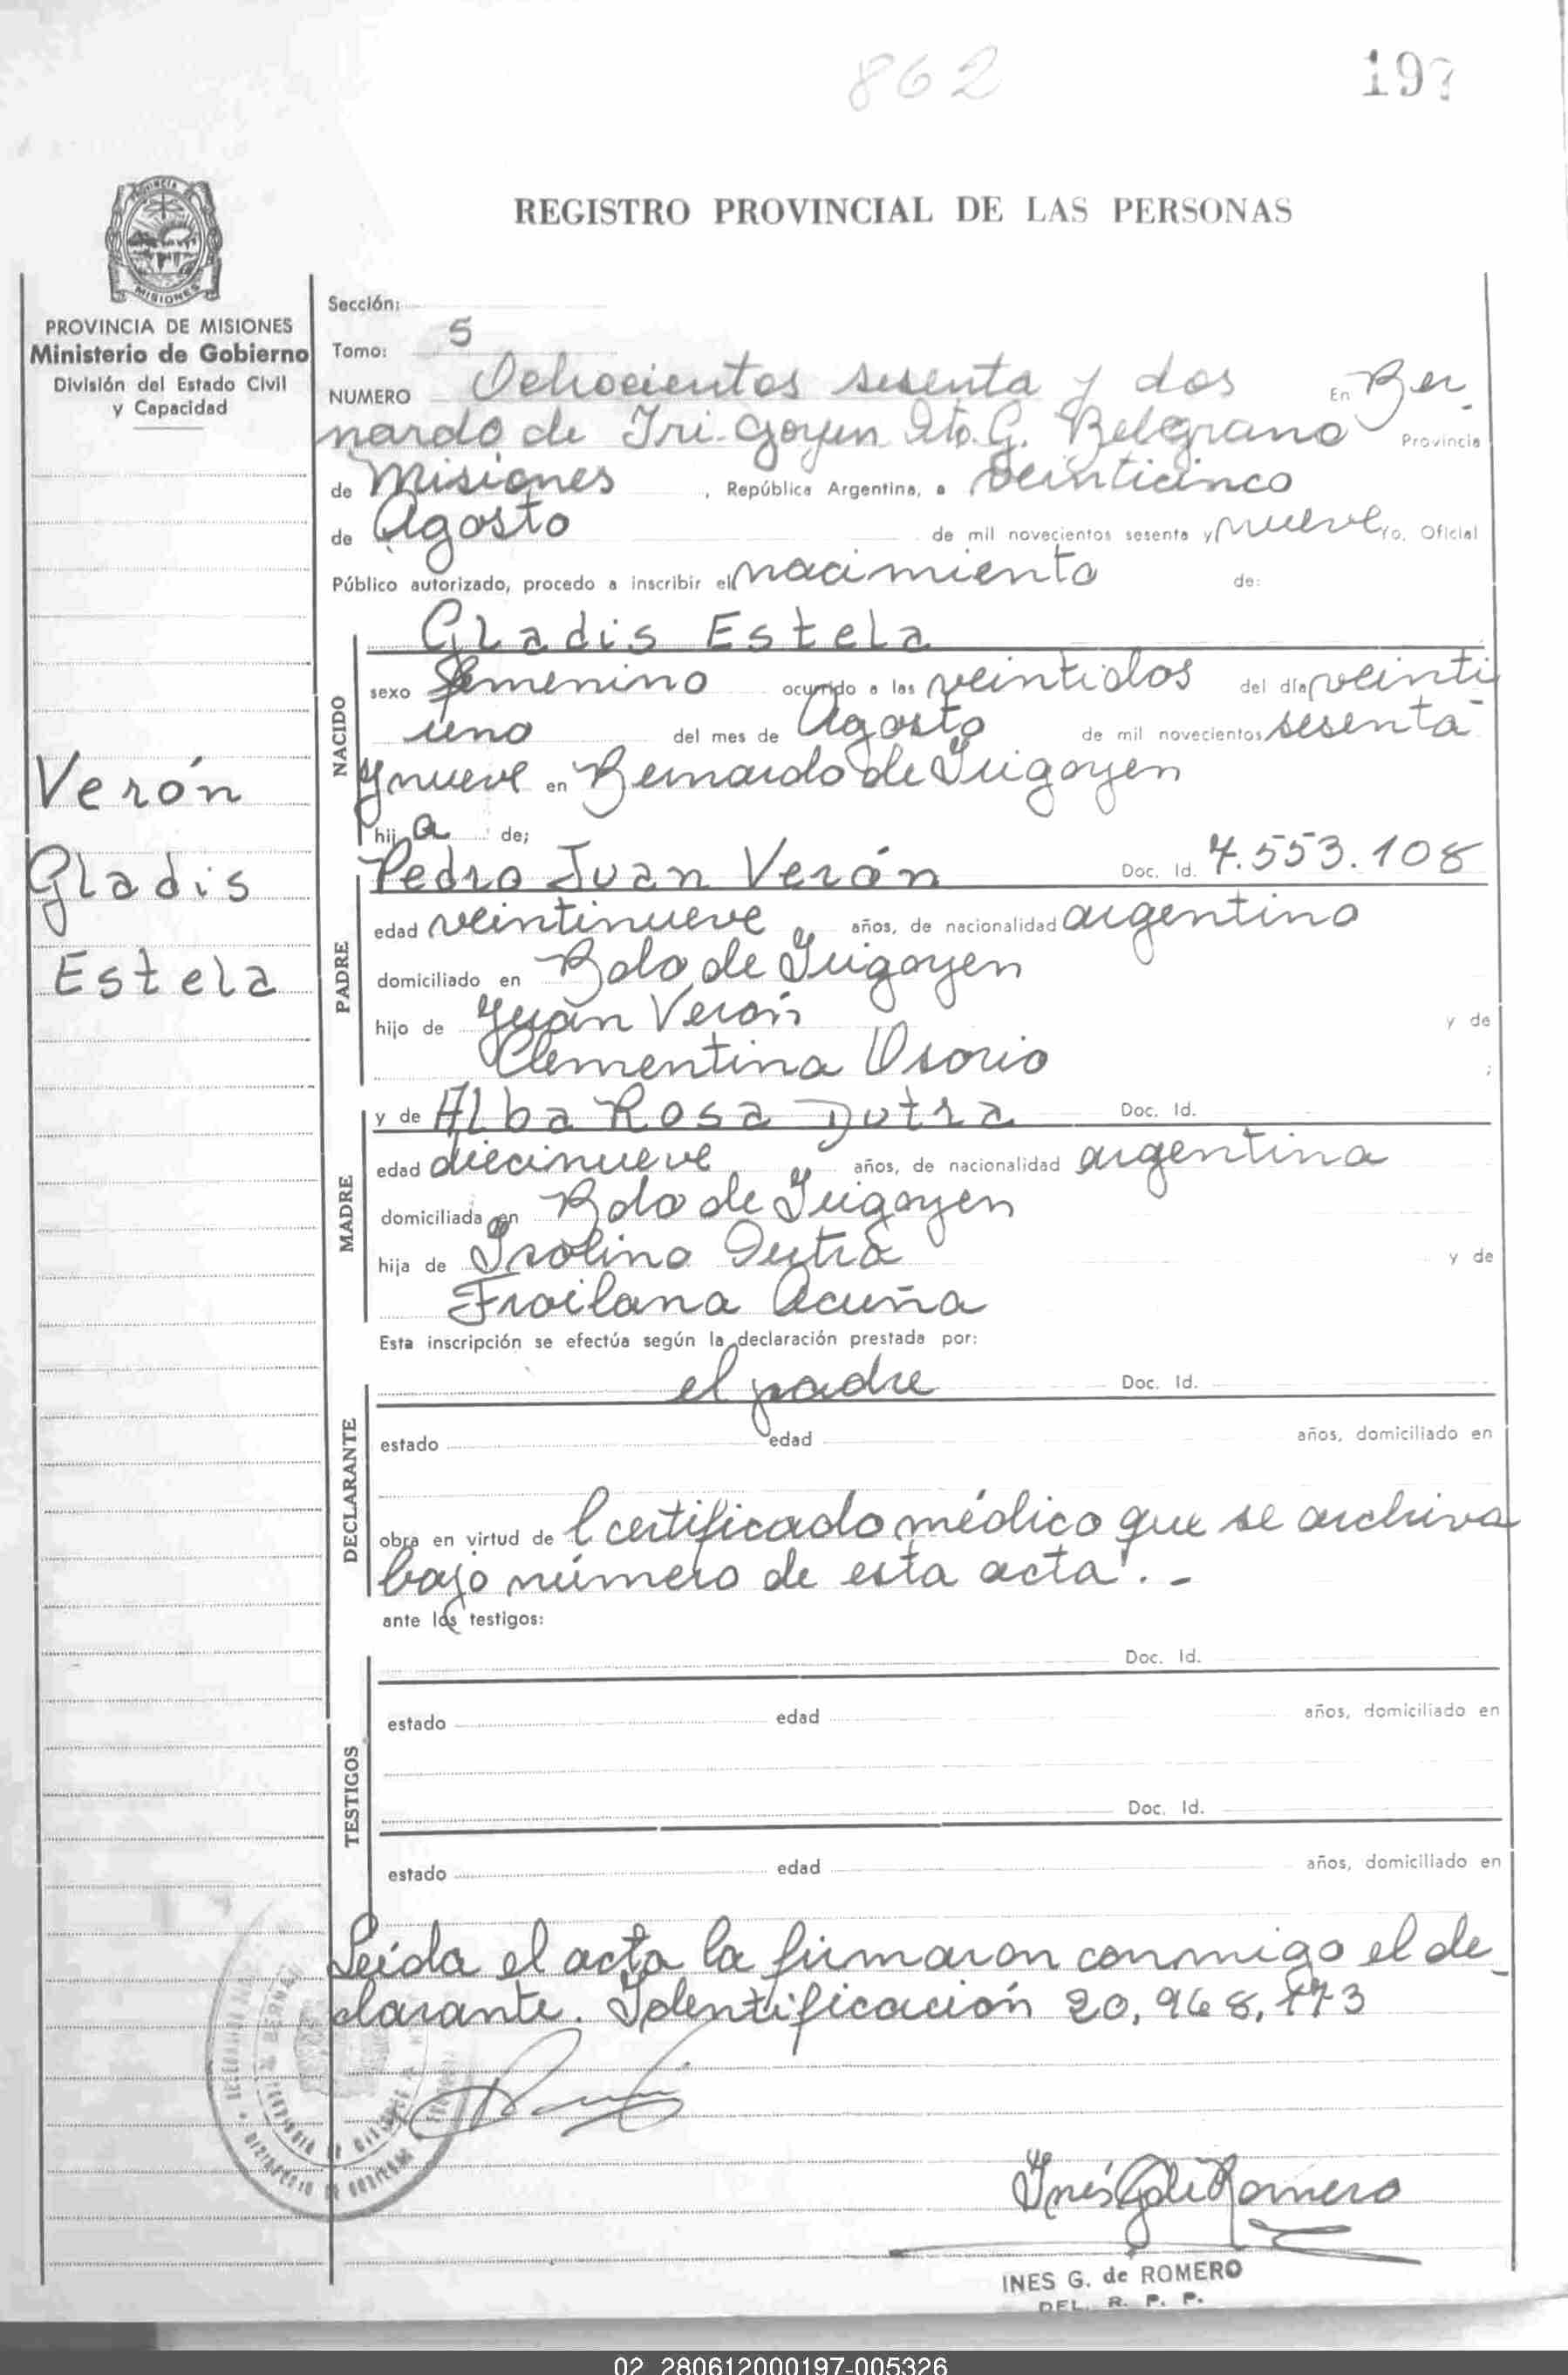 862
197
REGISTRO PROVINCIAL DE LAS PERSONAS
PROVINCIA
MISIONES
PROVINCIA DE MISIONES
Ministerio de Gobierno
División del Estado Civil
y Capacidad
Verón
Gladis
Estela
Sección:
Tomo: 5
NUMERO Ochocientos sesenta y dos En Ber-
nardo de Iri-goyen Dto. G. Belgrano Provincia
de Misiones , República Argentina, a veinticinco
de Agosto de mil novecientos sesenta y nueve yo, Oficial
Público autorizado, procedo a inscribir el nacimiento de:
NACIDO
Gladis Estela
sexo femenino ocurrido a las veintidos del día veinti
uno del mes de Agosto de mil novecientos sesenta
y nueve en Bernardo de Irigoyen
hij a de;
PADRE
Pedro Juan Verón Doc. Id. 7.553.108
edad veintinueve años, de nacionalidad argentino
domiciliado en Bdo de Irigoyen
hijo de Juan Verón y de
Clementina Osorio ;
MADRE
y de Alba Rosa Dutra Doc. Id.
edad diecinueve años, de nacionalidad argentina
domiciliada en Bdo de Irigoyen
hija de Isolino Dutra y de
Froilana Acuña
Esta inscripción se efectúa según la declaración prestada por:
DECLARANTE
el padre Doc. Id.
estado edad años, domiciliado en
obra en virtud de l certificado médico que se archiva
bajo número de esta acta. -
ante los testigos:
TESTIGOS
Doc. Id.
estado edad años, domiciliado en
Doc. Id.
estado edad años, domiciliado en
Leída el acta la firmaron conmigo el de-
clarante. Identificación 20,968,173
Inés G de Romero
INES G. de ROMERO
DEL. R. P. P.
02 280612000197-005326